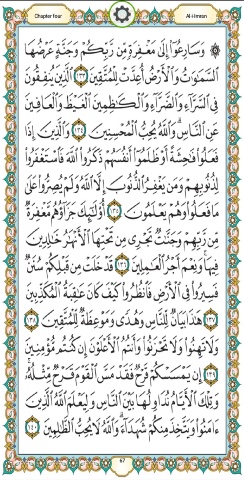 Chapter four
Al-Imran
۞ وَسَارِعُوٓا۟ إِلَىٰ مَغْفِرَةٍ مِّن رَّبِّكُمْ وَجَنَّةٍ عَرْضُهَا
ٱلسَّمَٰوَٰتُ وَٱلْأَرْضُ أُعِدَّتْ لِلْمُتَّقِينَ ١٣٣ ٱلَّذِينَ يُنفِقُونَ
فِى ٱلسَّرَّآءِ وَٱلضَّرَّآءِ وَٱلْكَٰظِمِينَ ٱلْغَيْظَ وَٱلْعَافِينَ
عَنِ ٱلنَّاسِ ۗ وَٱللَّهُ يُحِبُّ ٱلْمُحْسِنِينَ ١٣٤ وَٱلَّذِينَ إِذَا
فَعَلُوا۟ فَٰحِشَةً أَوْ ظَلَمُوٓا۟ أَنفُسَهُمْ ذَكَرُوا۟ ٱللَّهَ فَٱسْتَغْفَرُوا۟
لِذُنُوبِهِمْ وَمَن يَغْفِرُ ٱلذُّنُوبَ إِلَّا ٱللَّهُ وَلَمْ يُصِرُّوا۟ عَلَىٰ
مَا فَعَلُوا۟ وَهُمْ يَعْلَمُونَ ١٣٥ أُو۟لَٰٓئِكَ جَزَآؤُهُم مَّغْفِرَةٌ
مِّن رَّبِّهِمْ وَجَنَّٰتٌ تَجْرِى مِن تَحْتِهَا ٱلْأَنْهَٰرُ خَٰلِدِينَ
فِيهَا ۚ وَنِعْمَ أَجْرُ ٱلْعَٰمِلِينَ ١٣٦ قَدْ خَلَتْ مِن قَبْلِكُمْ سُنَنٌ
فَسِيرُوا۟ فِى ٱلْأَرْضِ فَٱنظُرُوا۟ كَيْفَ كَانَ عَٰقِبَةُ ٱلْمُكَذِّبِينَ
١٣٧ هَٰذَا بَيَانٌ لِّلنَّاسِ وَهُدًى وَمَوْعِظَةٌ لِّلْمُتَّقِينَ ١٣٨
وَلَا تَهِنُوا۟ وَلَا تَحْزَنُوا۟ وَأَنتُمُ ٱلْأَعْلَوْنَ إِن كُنتُم مُّؤْمِنِينَ
١٣٩ إِن يَمْسَسْكُمْ قَرْحٌ فَقَدْ مَسَّ ٱلْقَوْمَ قَرْحٌ مِّثْلُهُۥ ۚ
وَتِلْكَ ٱلْأَيَّامُ نُدَاوِلُهَا بَيْنَ ٱلنَّاسِ وَلِيَعْلَمَ ٱللَّهُ ٱلَّذِينَ
ءَامَنُوا۟ وَيَتَّخِذَ مِنكُمْ شُهَدَآءَ ۗ وَٱللَّهُ لَا يُحِبُّ ٱلظَّٰلِمِينَ ١٤٠
67